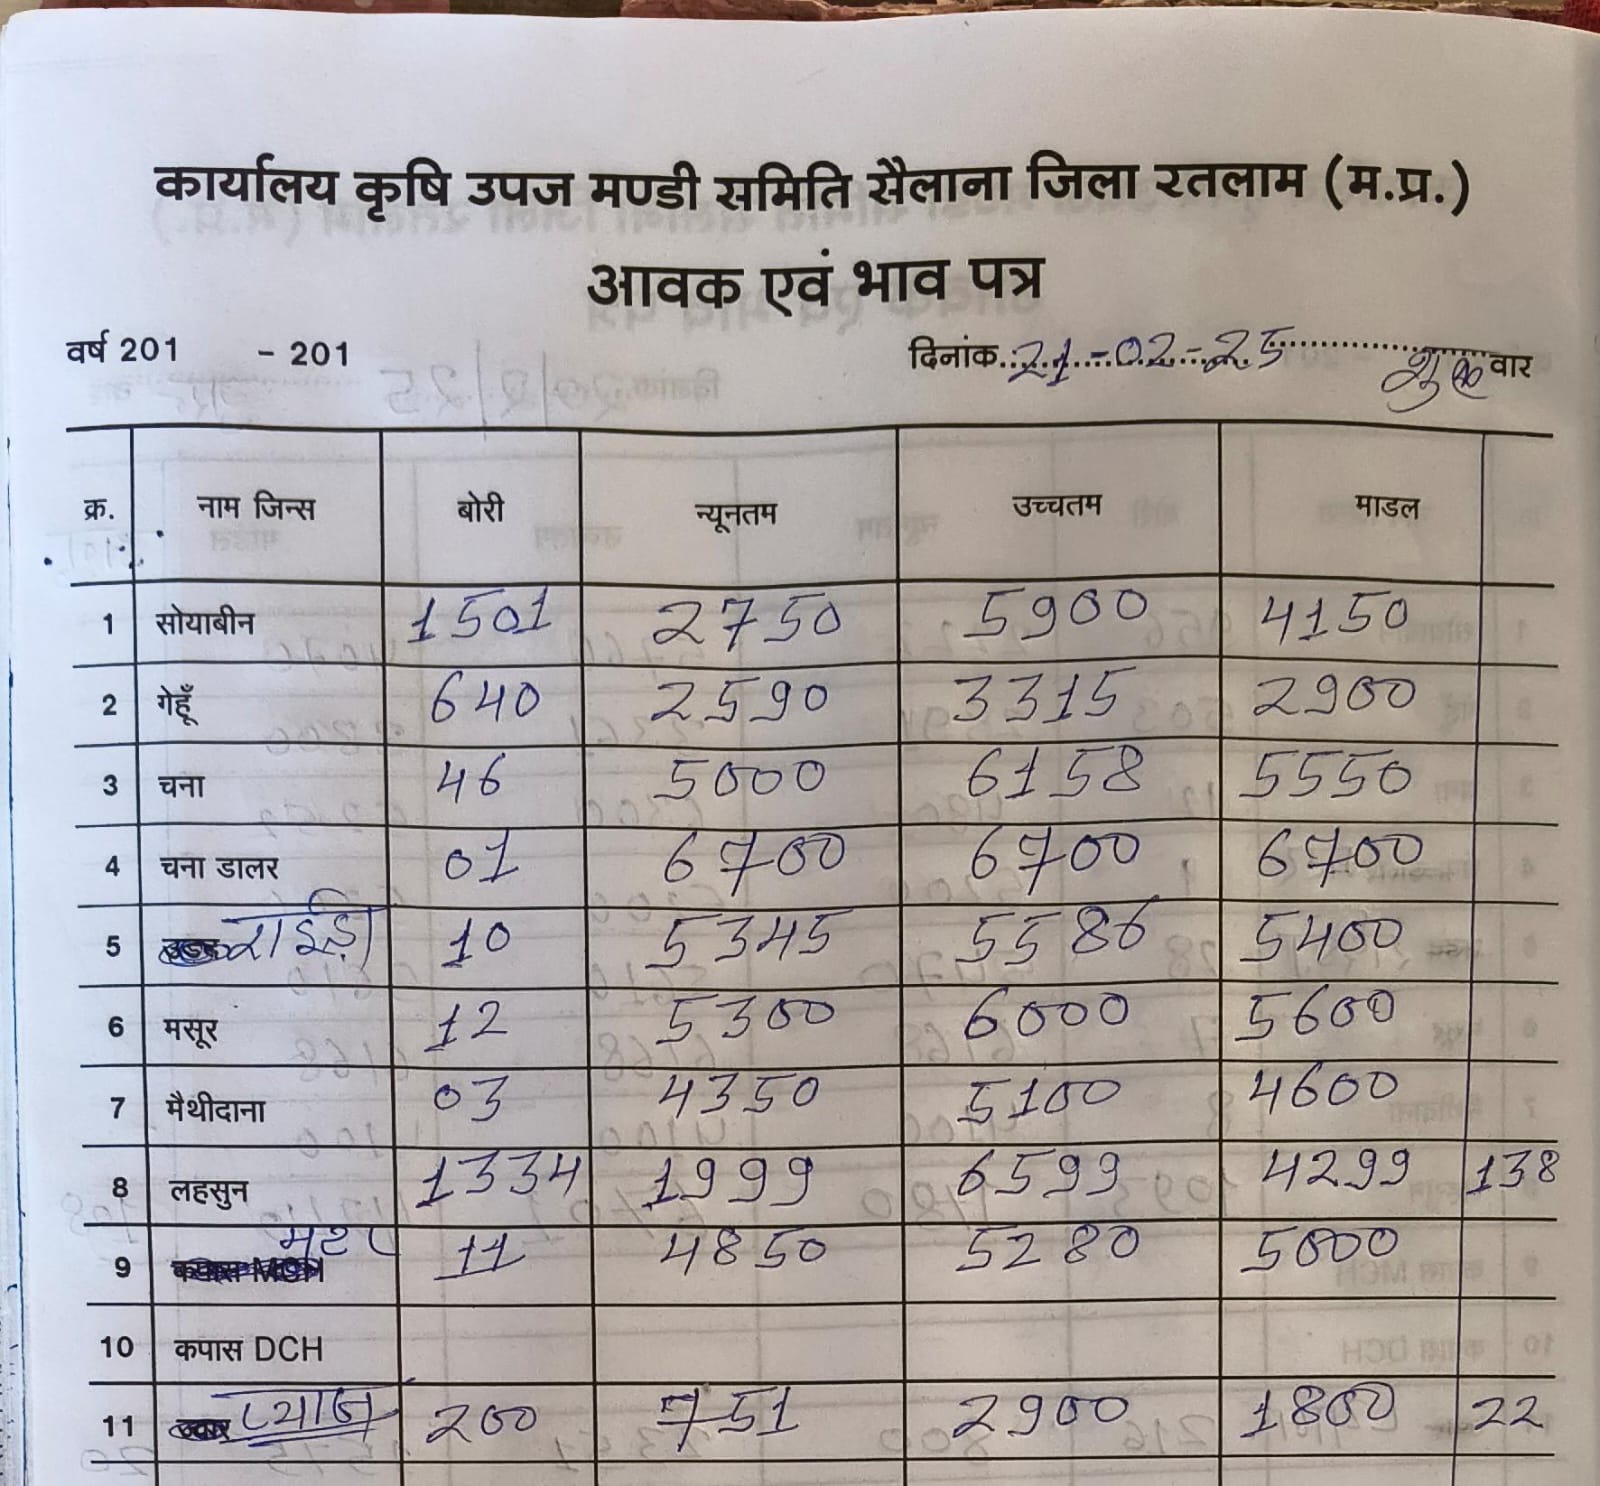 कार्यालय कृषि उपज मण्डी समिति सैलाना जिला रतलाम (म.प्र.)
आवक एवं भाव पत्र
वर्ष 201 - 201 दिनांक 21-02-25 शुक्र वार
क्र. नाम जिन्स बोरी न्यूनतम उच्चतम माडल
1 सोयाबीन 1501 2750 5900 4150
2 गेहूँ 640 2590 3315 2900
3 चना 46 5000 6158 5550
4 चना डालर 01 6700 6700 6700
5 राईड़ा 10 5345 5586 5400
6 मसूर 12 5300 6000 5600
7 मैथीदाना 03 4350 5100 4600
8 लहसुन 1334 1999 6599 4299 138
9 मटर 11 4850 5280 5000
10 कपास DCH
11 प्याज 200 751 2900 1800 22